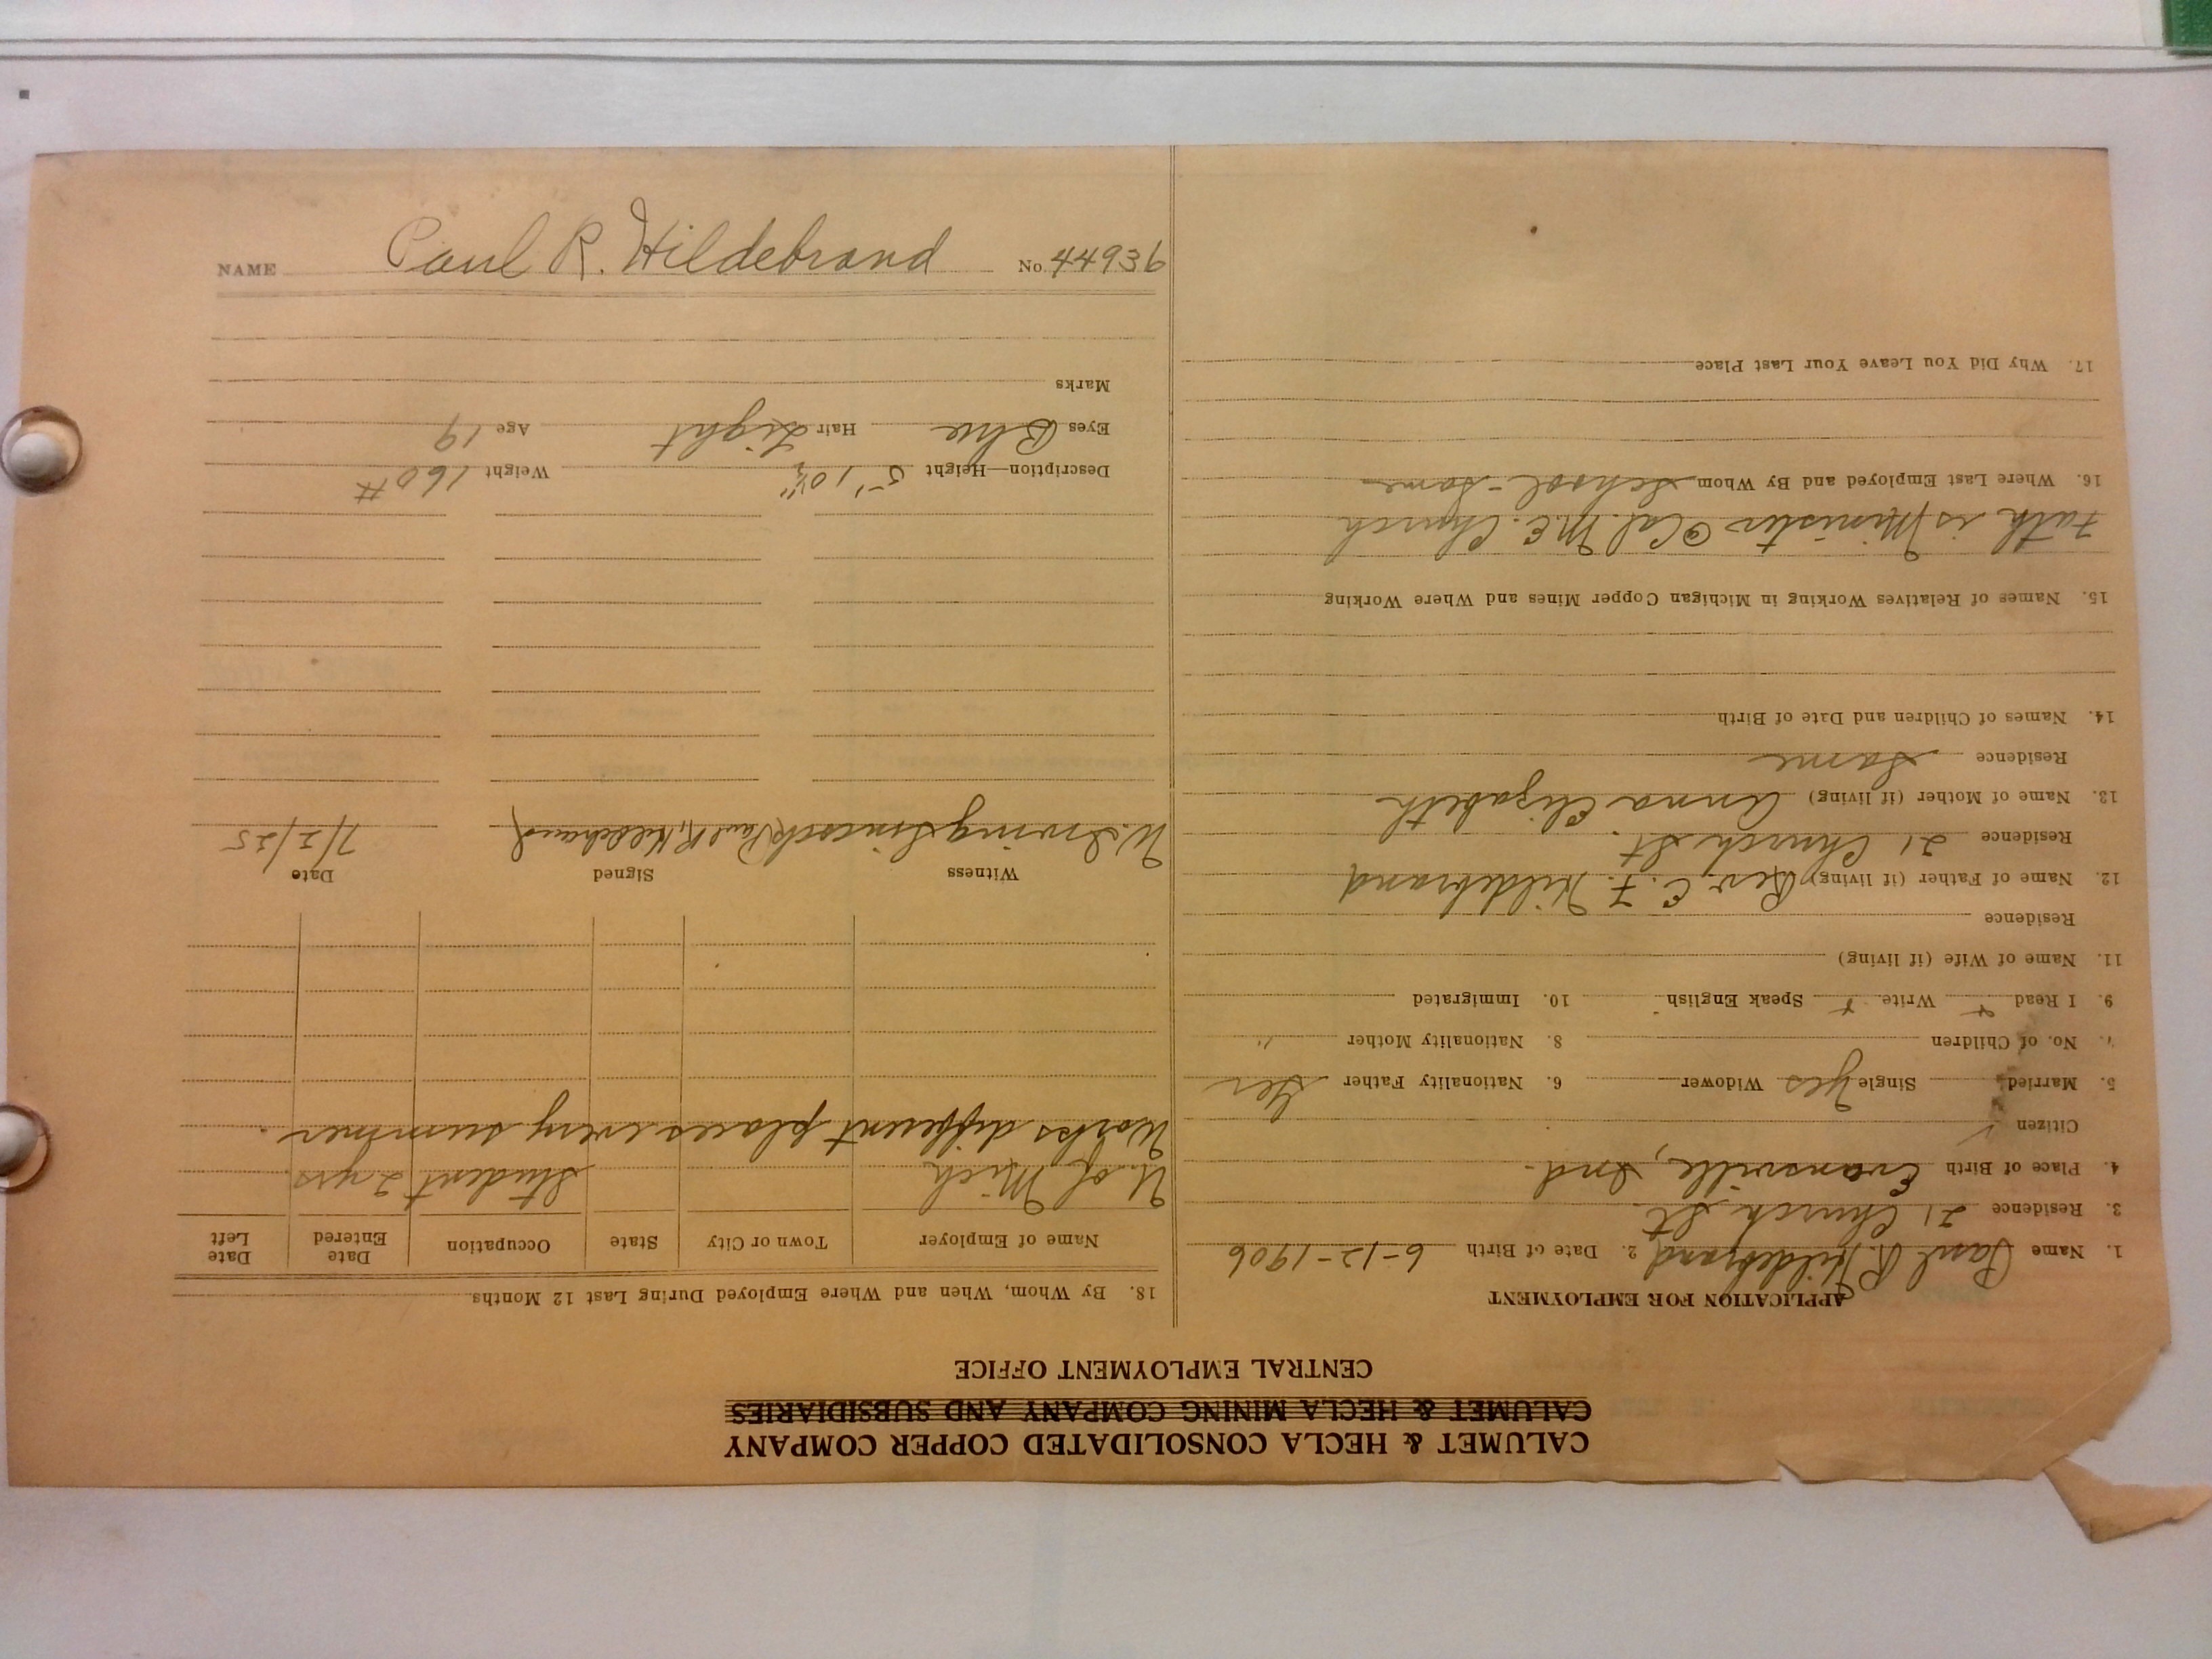 CALUMET & HECLA CONSOLIDATED COPPER COMPANY
CALUMET & HECLA MINING COMPANY AND SUBSIDIARIES
CENTRAL EMPLOYMENT OFFICE
APPLICATION FOR EMPLOYMENT
1. Name Paul R. Hildebrand 2. Date of Birth 6-12-1906
3. Residence 21 Church St.
4. Place of Birth Evansville, Ind.
Citizen ✓
5. Married Single Yes Widower 6. Nationality Father Ger
7. No. of Children 8. Nationality Mother "
9. I Read Write Speak English 10. Immigrated
11. Name of Wife (if living)
Residence
12. Name of Father (if living) Rev. C. F. Hildebrand
Residence 21 Church St.
13. Name of Mother (if living) Anna Elizabeth
Residence Same
14. Names of Children and Date of Birth
15. Names of Relatives Working in Michigan Copper Mines and Where Working
Fath is Minister @ Cal. M.E. Church
16. Where Last Employed and By Whom School - Same
17. Why Did You Leave Your Last Place
18. By Whom, When and Where Employed During Last 12 Months
Name of Employer Town or City State Occupation Date Entered Date Left
U. of Mich Student 2 yrs
Works different places every summer.
Witness Signed Date
W. Irving Sincock Paul R. Hildebrand 7/2/25
Description—Height 5' 10½" Weight 160 #
Eyes Blue Hair Light Age 19
Marks
NAME Paul R. Hildebrand No. 44936